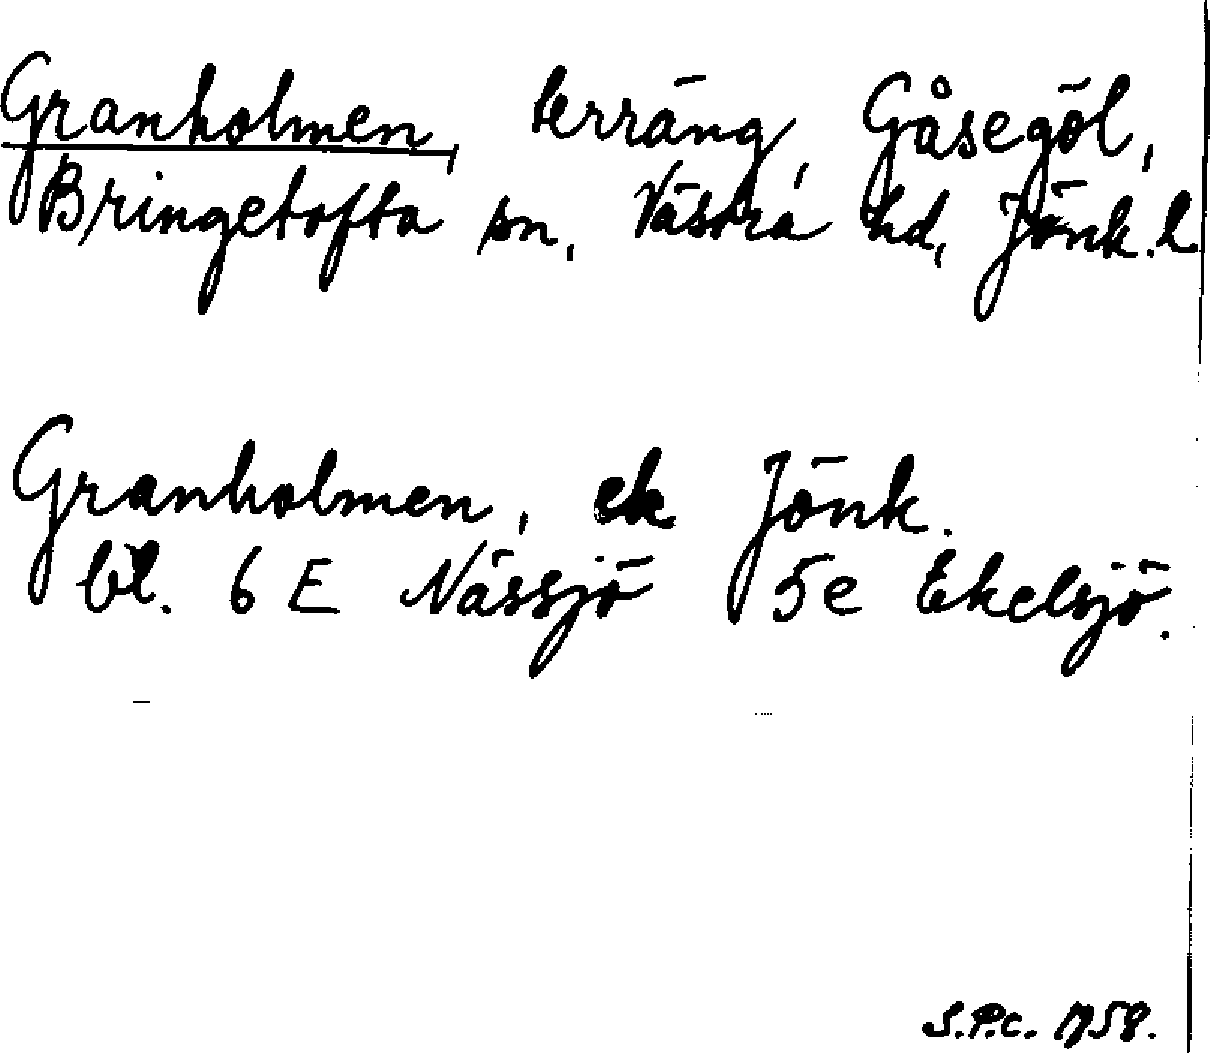 Granholmen, terräng, Gåsegöl,
Bringetofta sn, Västra hd, Jönk. l
Granholmen, ek Jönk.
bl. 6 E Nässjö 5e Ekelsjö.
S.P.C. 1958.